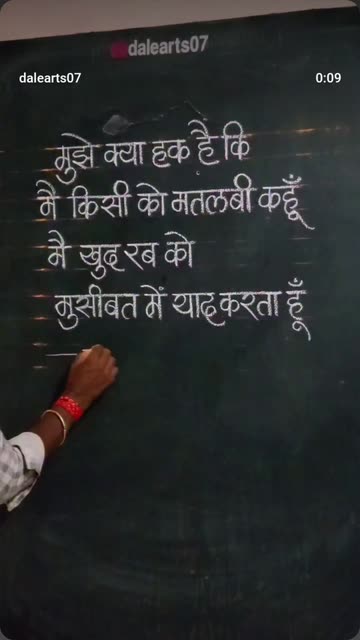 dalearts07
dalearts07 0:09
मुझे क्या हक है कि
मै किसी को मतलबी कहूँ
मै खुद रब को
मुसीबत में याद करता हूँ